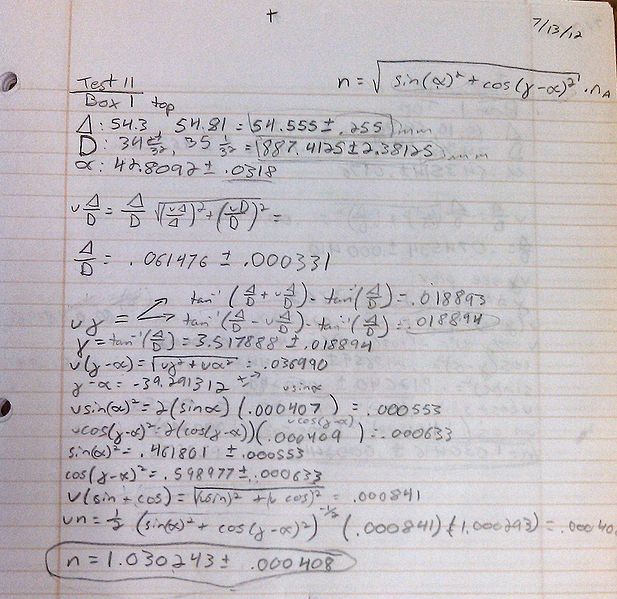 7/13/12
n = √(sin(α)² + cos(γ-α)²) · n_A
Test 11
Box 1 top
Δ: 54.3, 54.81 = 54.555 ± .255 mm
D: 35 1/32 = 887.4125 ± 2.38125 mm
α: 42.8092 ± .0318
υ Δ/D = Δ/D √((υΔ/Δ)² + (υD/D)²) =
Δ/D = .061476 ± .000331
tan⁻¹(Δ/D + υ Δ/D) - tan⁻¹(Δ/D) = .018893
υγ =
tan⁻¹(Δ/D - υ Δ/D) - tan⁻¹(Δ/D) = .018894
γ = tan⁻¹(Δ/D) = 3.517888 ± .018894
υ(γ-α) = √(υγ² + υα²) = .036990
γ-α = -39.291312 ±
υsinα
υsin(α)² = 2(sinα)(.000407) = .000553
υcos(γ-α)
υcos(γ-α)² = 2(cos(γ-α))(.000409) = .000633
sin(α)² = .461801 ± .000553
cos(γ-α)² = .598977 ± .000633
υ(sin + cos) = √((υsin)² + (υcos)²) = .000841
υn = ½ (sin(α)² + cos(γ-α)²)^-½ (.000841)(1.000293) = .000408
n = 1.030243 ± .000408